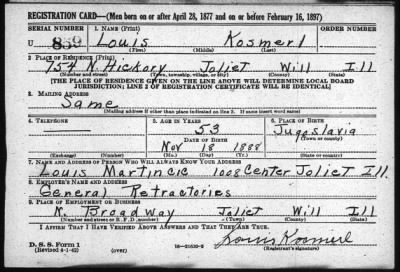 REGISTRATION CARD—(Men born on or after April 28, 1877 and on or before February 16, 1897)
SERIAL NUMBER 1. NAME (Print)
U 859 Louis Kosmerl
(First) (Middle) (Last)
2. PLACE OF RESIDENCE (Print)
754 N. Hickory Joliet Will Ill
(Number and street) (Town, township, village, or city) (County) (State)
[THE PLACE OF RESIDENCE GIVEN ON THE LINE ABOVE WILL DETERMINE LOCAL BOARD
JURISDICTION; LINE 2 OF REGISTRATION CERTIFICATE WILL BE IDENTICAL]
3. MAILING ADDRESS
Same
(Mailing address if other than place indicated on line 2. If same insert word same)
4. TELEPHONE 5. AGE IN YEARS 6. PLACE OF BIRTH
53 Jugoslavia
DATE OF BIRTH (Town or county)
Nov 18 1888
(Exchange) (Number) (Mo.) (Day) (Yr.) (State or country)
7. NAME AND ADDRESS OF PERSON WHO WILL ALWAYS KNOW YOUR ADDRESS
Louis Martincic 1008 Center Joliet Ill.
8. EMPLOYER'S NAME AND ADDRESS
General Refractories
9. PLACE OF EMPLOYMENT OR BUSINESS
N. Broadway Joliet Will Ill
(Number and street or R. F. D. number) (Town) (County) (State)
I AFFIRM THAT I HAVE VERIFIED ABOVE ANSWERS AND THAT THEY ARE TRUE.
D. S. S. Form 1 Louis Kosmerl
(Revised 4-1-42) (over) 16—21630-2 (Registrant's signature)